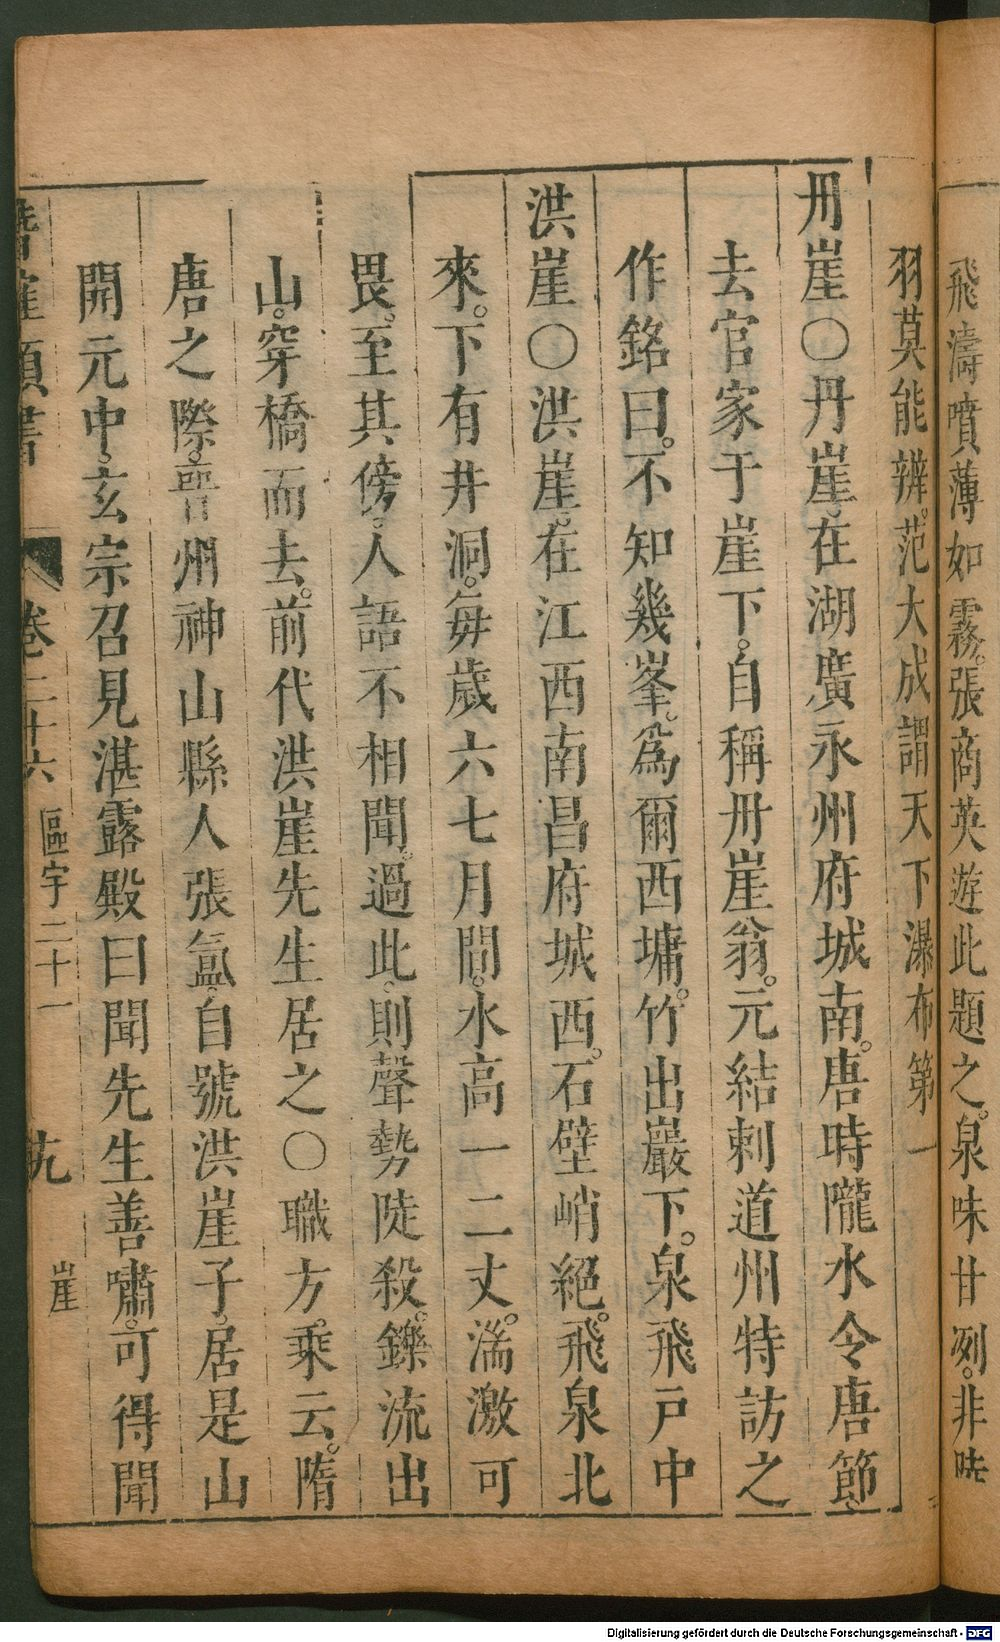 飛濤噴薄如霧。張商英遊此題之。泉味甘冽。非陸
羽莫能辨。范大成謂天下瀑布第一
丹崖〇丹崖。在湖廣永州府城南。唐時隴水令唐節
去官家于崖下。自稱丹崖翁。元結刺道州特訪之
作銘曰。不知幾峯。爲爾西墉。竹出巖下。泉飛戶中
洪崖〇洪崖。在江西南昌府城西。石壁峭絕。飛泉北
來。下有井洞。每歲六七月間。水高一二丈。湍激可
畏。至其傍。人語不相聞。過此。則聲勢陡殺。鑠流出
山。穿橋而去。前代洪崖先生居之〇職方。乘云。隋
唐之際。晉州神山縣人張氳。自號洪崖子。居是山
開元中。玄宗召見湛露殿曰聞先生善嘯。可得聞
潛確類書 卷二十六 區宇二十一 崖
Digitalisierung gefördert durch die Deutsche Forschungsgemeinschaft - DFG